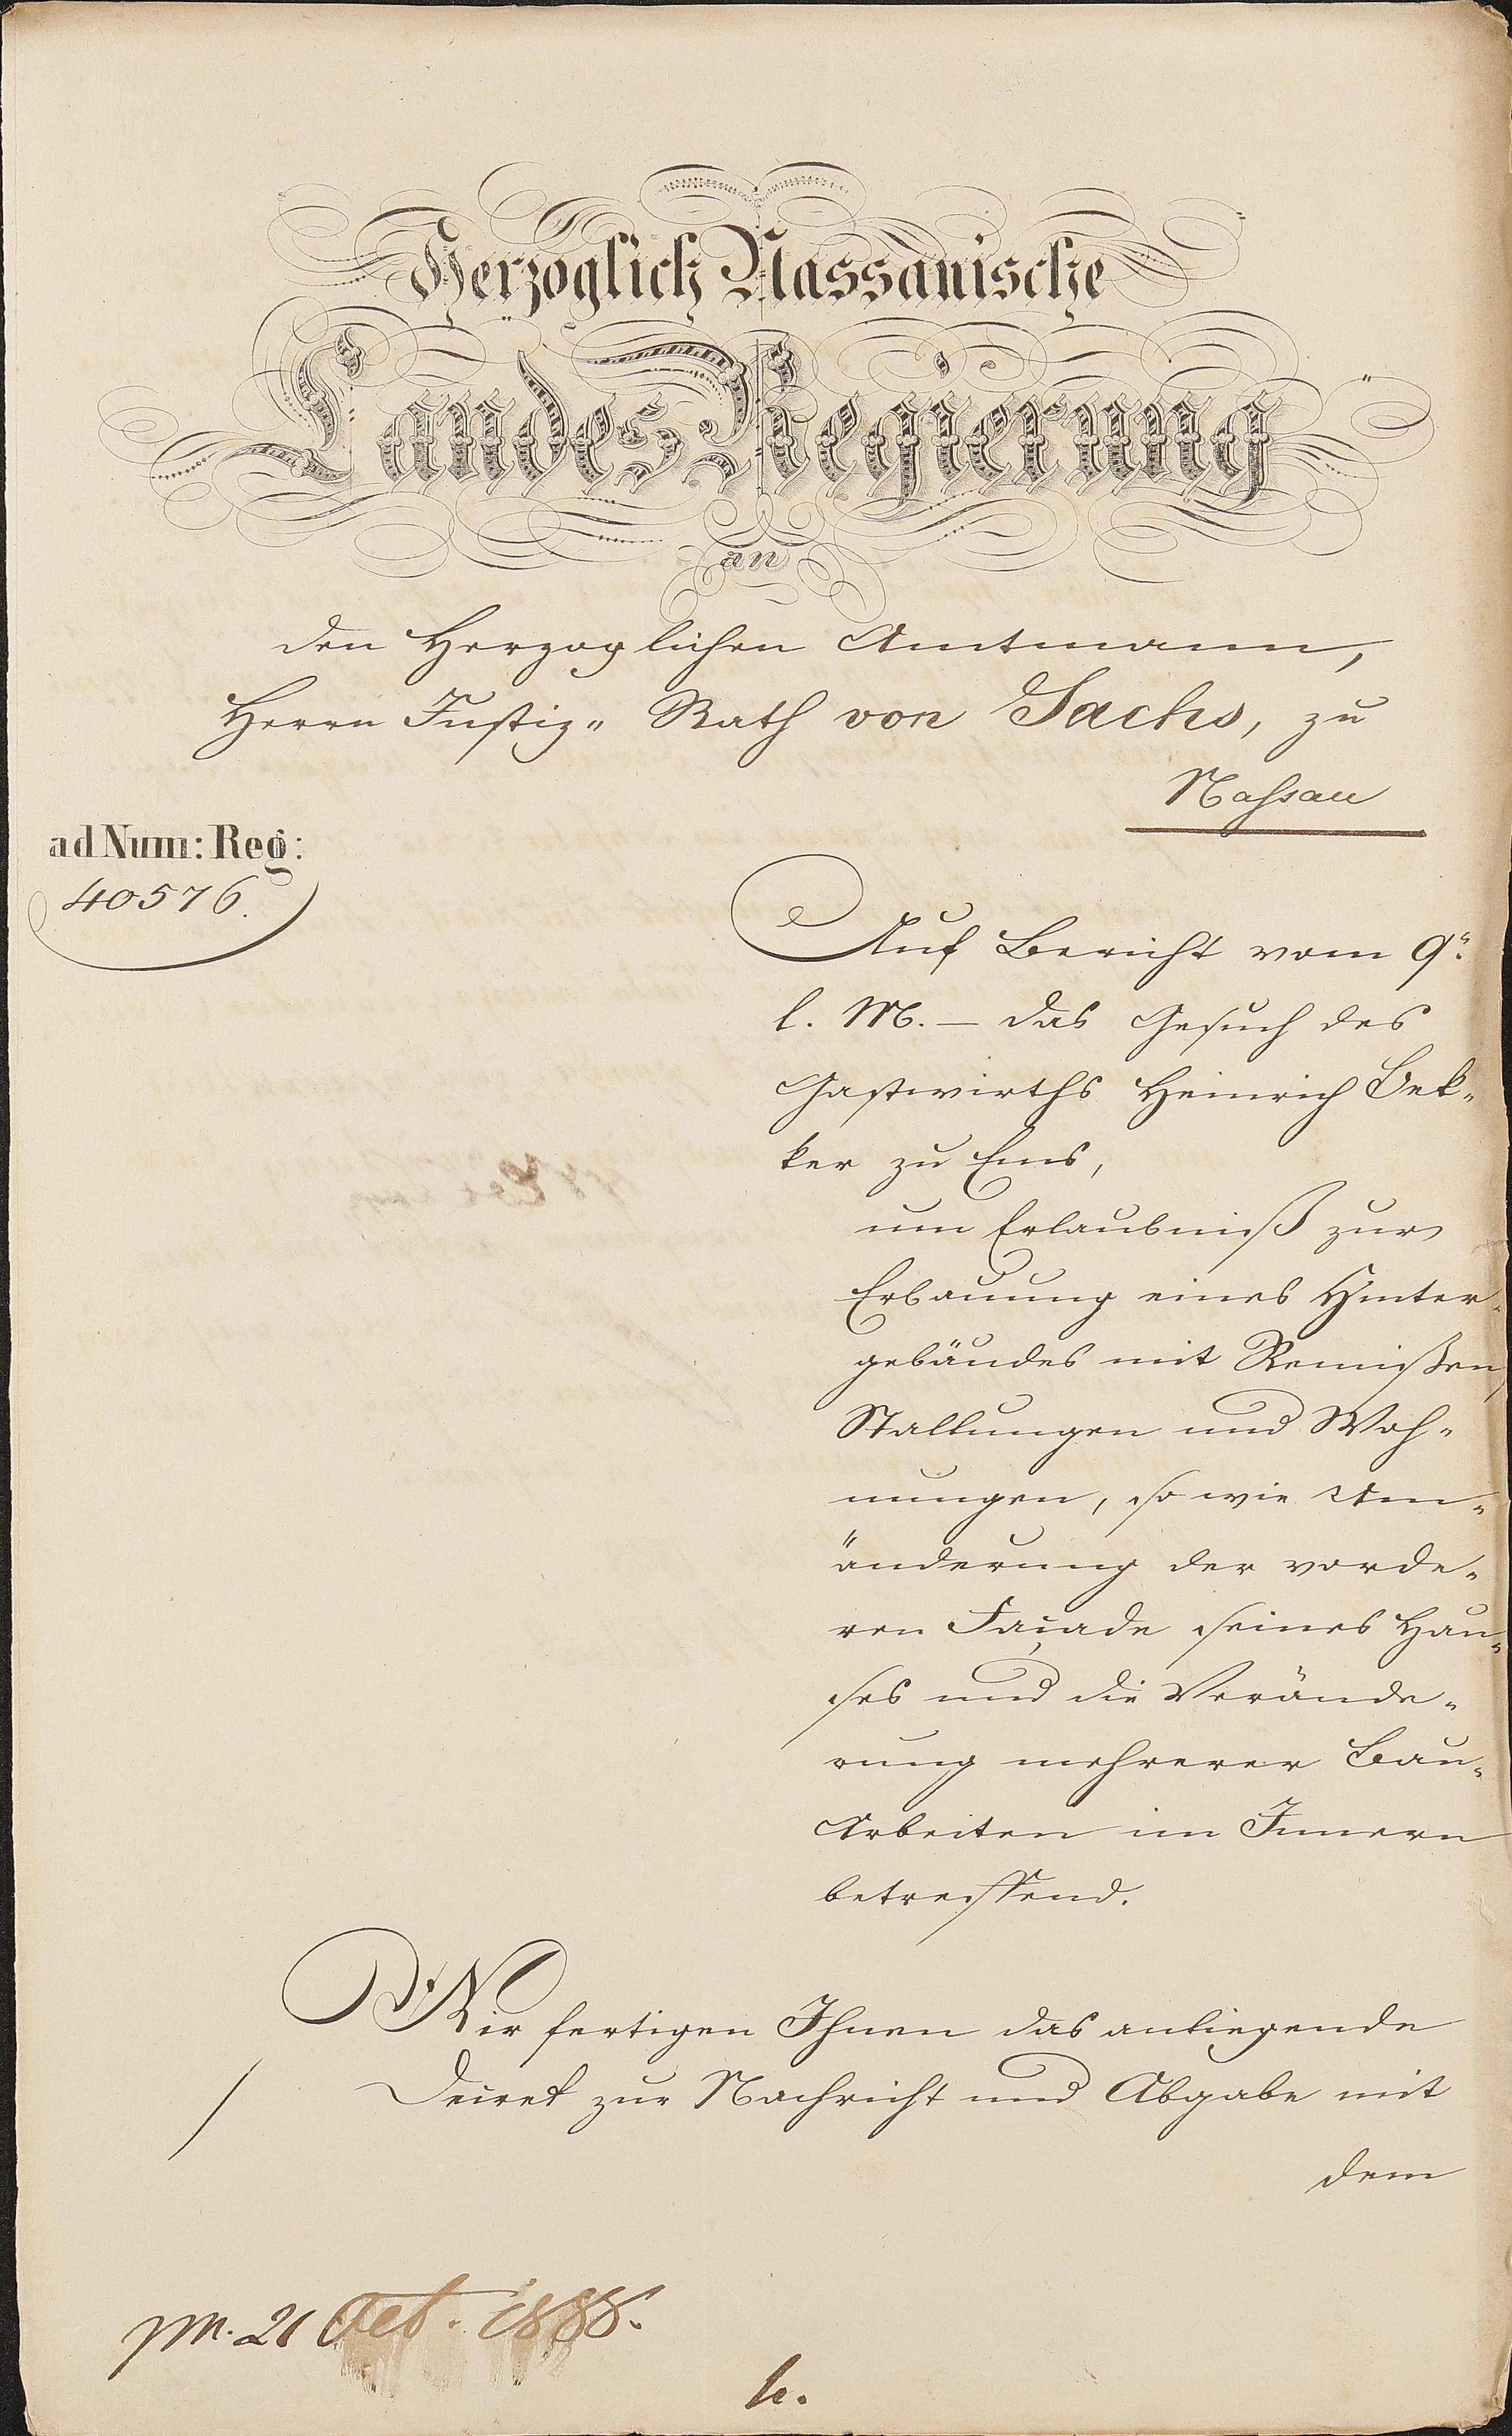 Herzoglich Nassauische
Landes Regierung
an
den Herzoglichen Amtmann,
Herrn Justiz- Rath von Sachs, zu
Nassau
ad Num: Reg:
40576.
Auf Bericht vom 9n.
l. M. — das Gesuch des
Gastwirths Heinrich Bek-
ker zu Ems,
um Erlaubniß zur
Erbauung eines Hinter-
gebäudes mit Remißen,
Stallungen und Woh-
nungen, so wie Um-
änderung der vorde-
ren Façade seines Hau-
ses und die Verände-
rung mehrerer Bau-
Arbeiten im Innern
betreffend.
Wir fertigen Ihnen das anliegende
Decret zur Nachricht und Abgabe mit
dem
pm. 21 Oct.